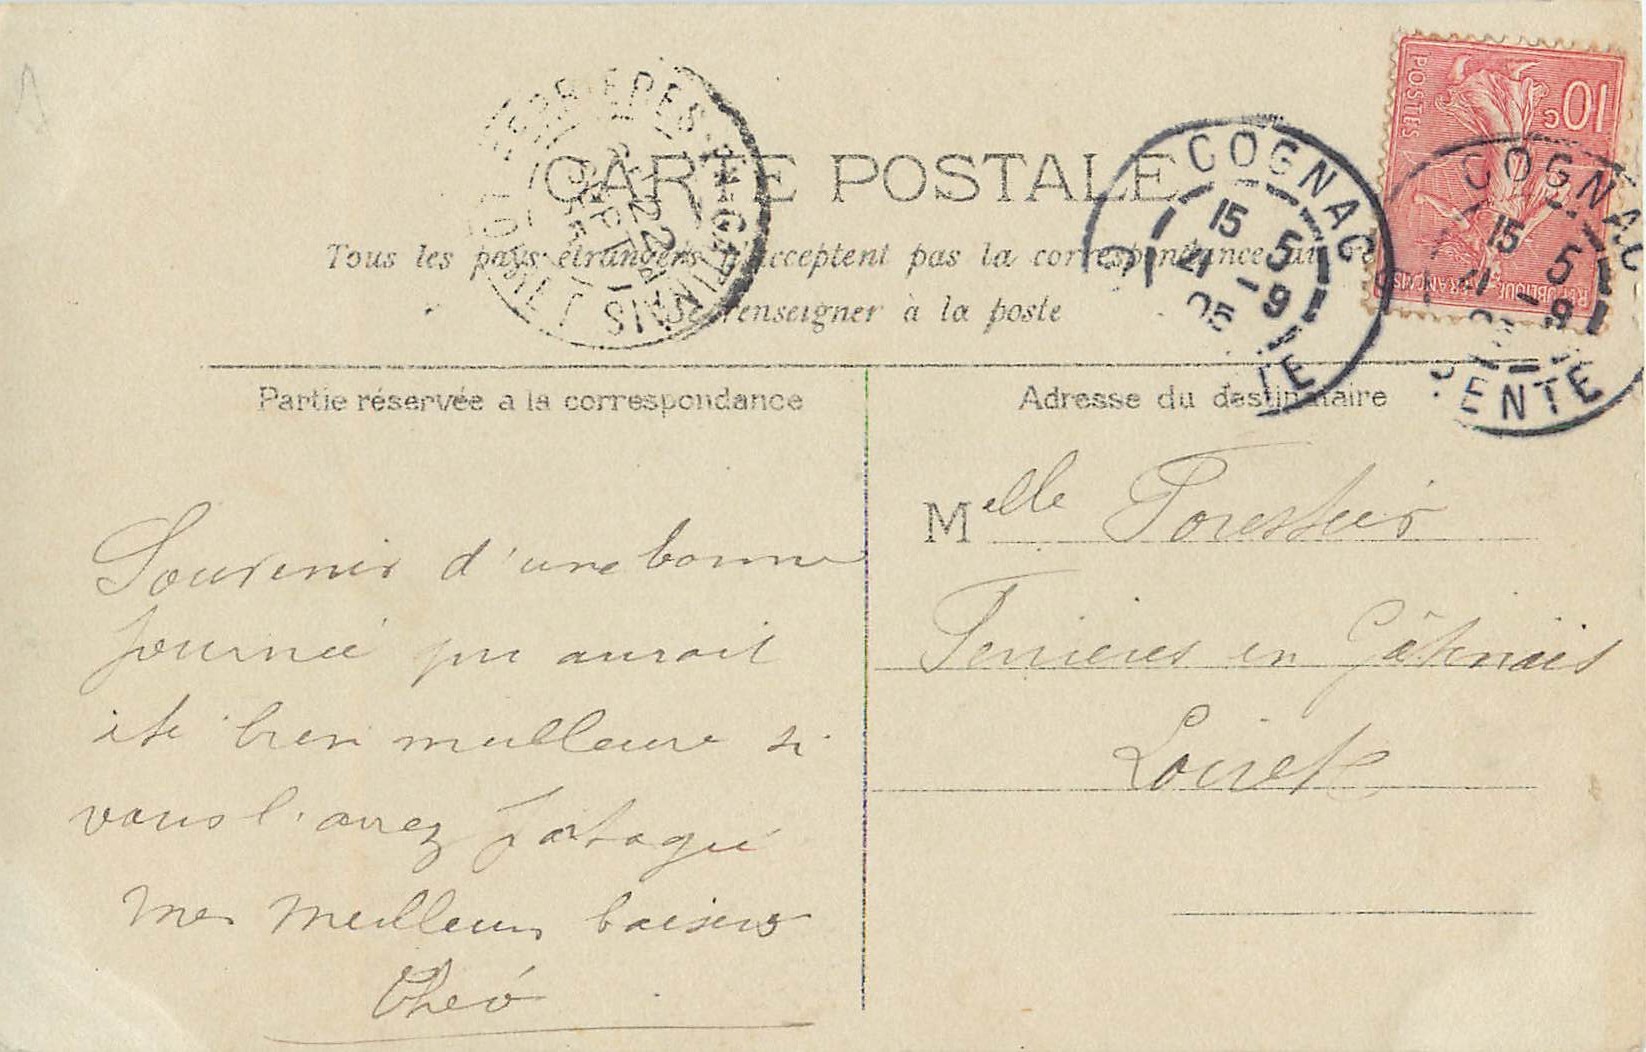 1
CARTE POSTALE
Tous les pays étrangers n'acceptent pas la correspondance au
Se renseigner à la poste
FERRIERES-EN-GATINAIS LOIRET
22
SEPT
05
COGNAC
15 5
21 -9
05
TE
COGNAC
15 5
21 -9
ENTE
10c
POSTES
REPUBLIQUE FRANÇAISE
Partie réservée a la correspondance
Adresse du destinataire
Souvenir d'une bonne
journée qui aurait
été bien meilleure si
vous l'avez partagée
Mes meilleurs baisers
Théo
Melle Forestier
Ferrieres en Gâtinais
Loiret